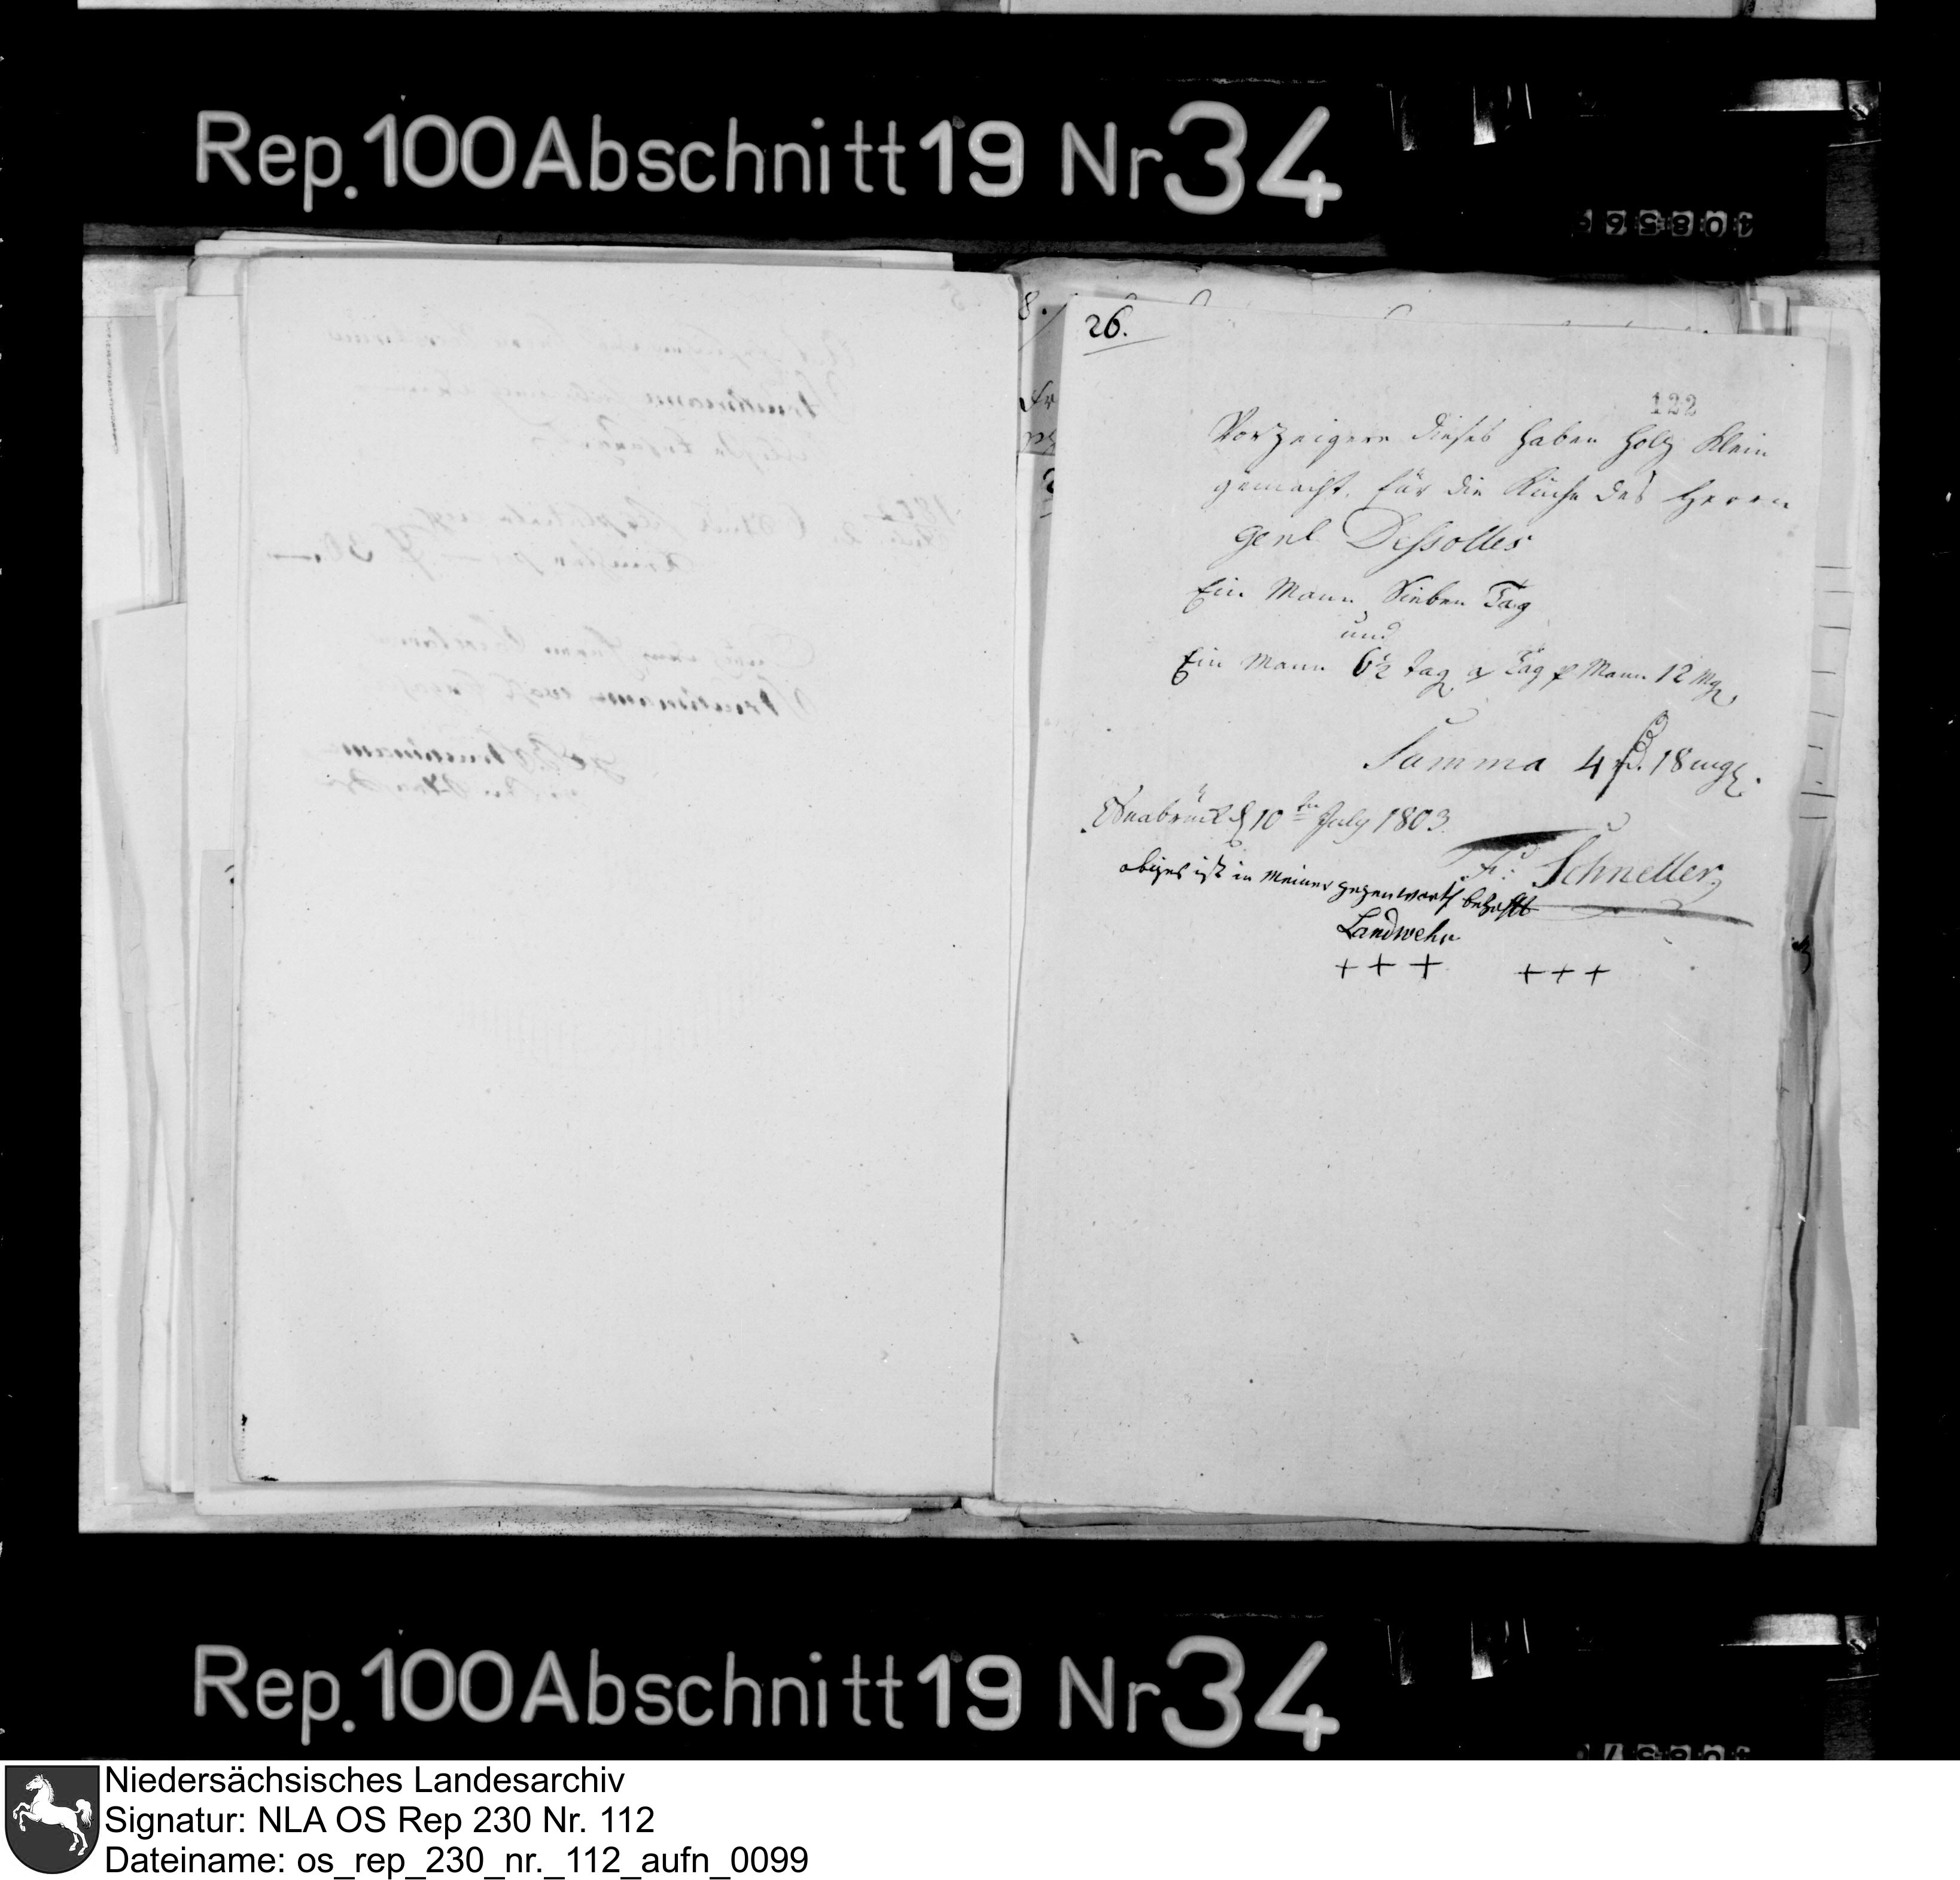 Rep. 100 Abschnitt 19 Nr 34
26.
122
Vorzeigere dieses haben Holz klein
gemacht, für die Küche des Herrn
Genl. Dessolles
Ein Mann Sieben Tag
und
Ein Mann 6½ Tag, a Tag p Mann 12 Mg,
Summa 4 rd. 18 mg.
Osnabrück d 10ten July 1803.
Fr: Schneller,
obiges ist in meiner gegenwart
Landwehr
+ + + + + +
Rep. 100 Abschnitt 19 Nr 34
Niedersächsisches Landesarchiv
Signatur: NLA OS Rep 230 Nr. 112
Dateiname: os_rep_230_nr._112_aufn_0099